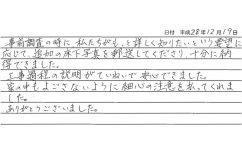 日付 平成28年12月19日
事前調査の時に、私たちがもっと詳しく知りたいという要望に
応じて、追加の床下写真を郵送してくださり、十分に納
得できました。
工事過程の説明がていねいで安心できました。
家の中もよごさないように細心の注意を払ってくれま
した。
ありがとうございました。